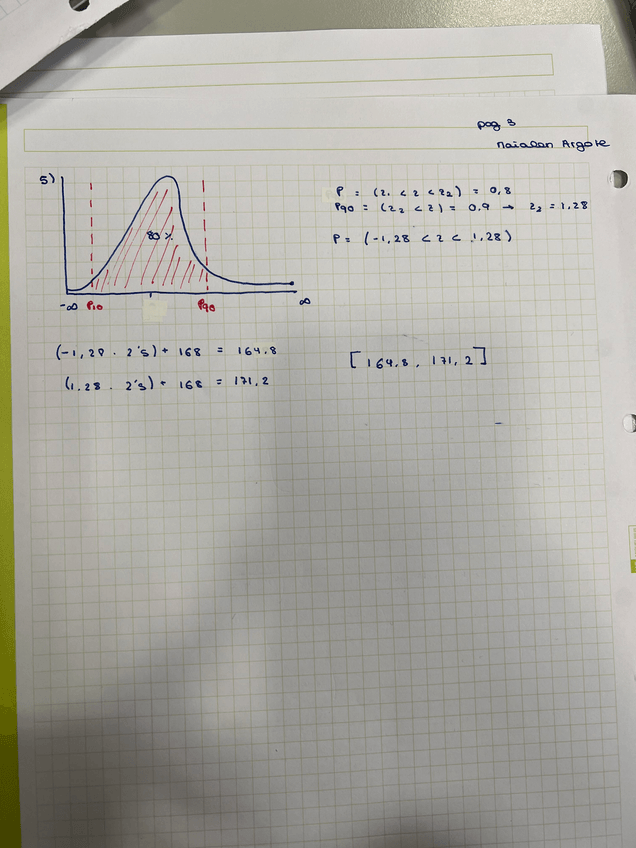 pag 3
Naialen Argote
5)
P = (z₁ < z < z₂) = 0,8
P90 = (z₂ < z) = 0,9 → z₂ = 1,28
P = (-1,28 < z < 1,28)
80 %
-∞ P10 P90 ∞
(-1,28 · 2'5) + 168 = 164,8
(1,28 · 2'5) + 168 = 171,2
[164,8, 171,2]